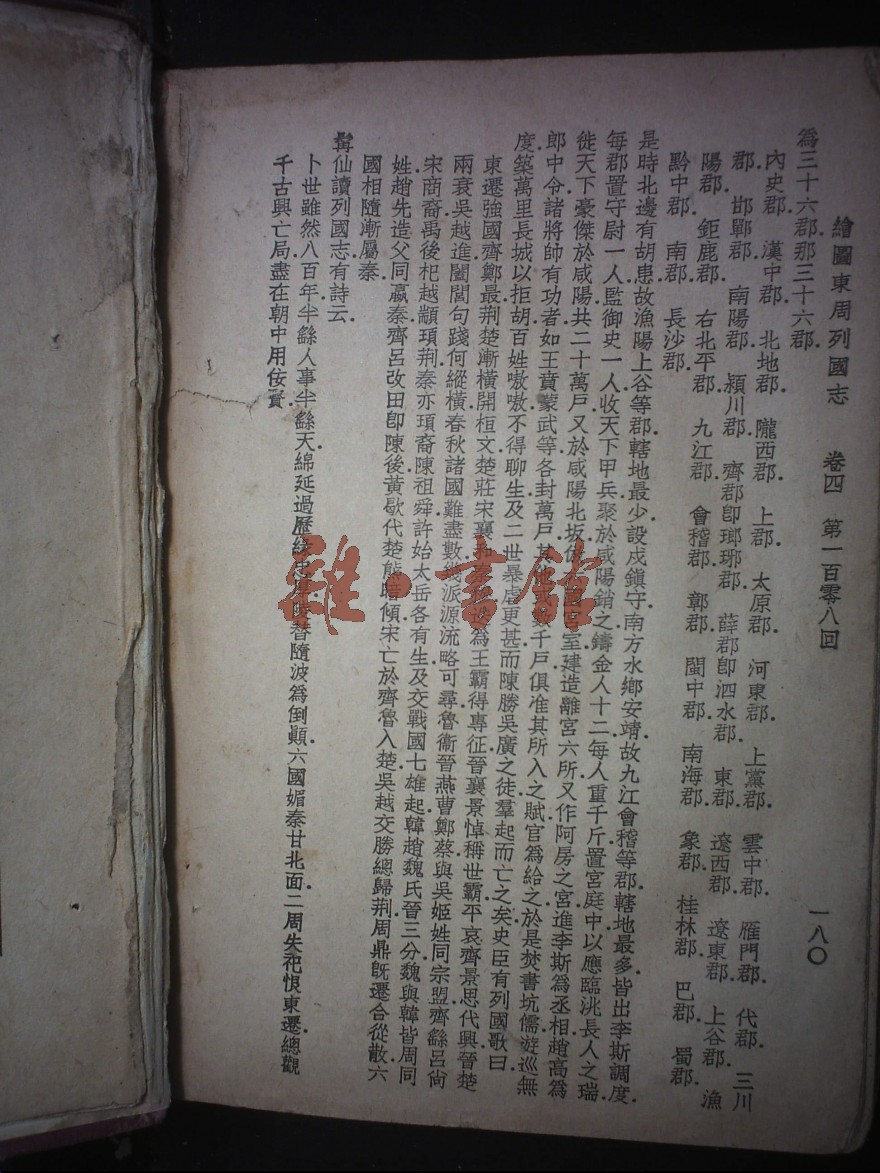 繪圖東周列國志 卷四 第一百零八回 一八〇
為三十六郡.那三十六郡.
內史郡. 漢中郡. 北地郡. 隴西郡. 上郡. 太原郡. 河東郡. 上黨郡. 雲中郡. 雁門郡. 代郡. 三川
郡. 邯鄲郡. 南陽郡. 潁川郡. 齊郡卽瑯琊郡. 薛郡卽泗水郡. 東郡. 遼西郡. 遼東郡. 上谷郡. 漁
陽郡. 鉅鹿郡. 右北平郡. 九江郡. 會稽郡. 鄣郡. 閩中郡. 南海郡. 象郡. 桂林郡. 巴郡. 蜀郡.
黔中郡. 南郡. 長沙郡.
是時北邊有胡患.故漁陽上谷等郡.轄地最少.設戍鎮守.南方水鄉安靖.故九江會稽等郡.轄地最多.皆出李斯調度.
每郡置守尉一人.監御史一人.收天下甲兵.聚於咸陽銷之.鑄金人十二.每人重千斤.置宮庭中.以應臨洮長人之瑞.
徙天下豪傑於咸陽.共二十萬戶.又於咸陽北坂.仿國宮室.建造離宮六所.又作阿房之宮.進李斯為丞相.趙高為
郎中令.諸將帥有功者.如王賁蒙武等.各封萬戶.其他數千戶.俱准其所入之賦.官為給之.於是焚書坑儒.遊巡無
度.築萬里長城以拒胡.百姓嗷嗷.不得聊生.及二世暴虐更甚.而陳勝吳廣之徒.羣起而亡之矣.史臣有列國歌曰.
東遷強國齊鄭最.荆楚漸橫開桓文.楚莊宋襄和秦為王霸得專征.晉襄景悼稱世霸.平哀齊景思代興.晉楚
兩衰吳越進.闔閭句踐何縱橫.春秋諸國難盡數.幾派源流略可尋.魯衞晉燕曹鄭蔡.與吳姬姓同宗盟.齊繇呂尙
宋商裔.禹後杞越顓頊荆.秦亦頊裔陳祖舜.許始太岳各有生.及交戰國七雄起.韓趙魏氏晉三分.魏與韓皆周同
姓.趙先造父同嬴秦.齊呂改田卽陳後.黃歇代楚熊暗傾.宋亡於齊魯入楚.吳越交勝總歸荆.周鼎旣遷合從散.六
國相隨漸屬秦.
髯仙讀列國志.有詩云.
卜世雖然八百年.半繇人事半繇天.綿延過歷緣忠厚.陵替隨波為倒顚.六國媚秦甘北面.二周失祀恨東遷.總觀
千古興亡局.盡在朝中用佞賢.